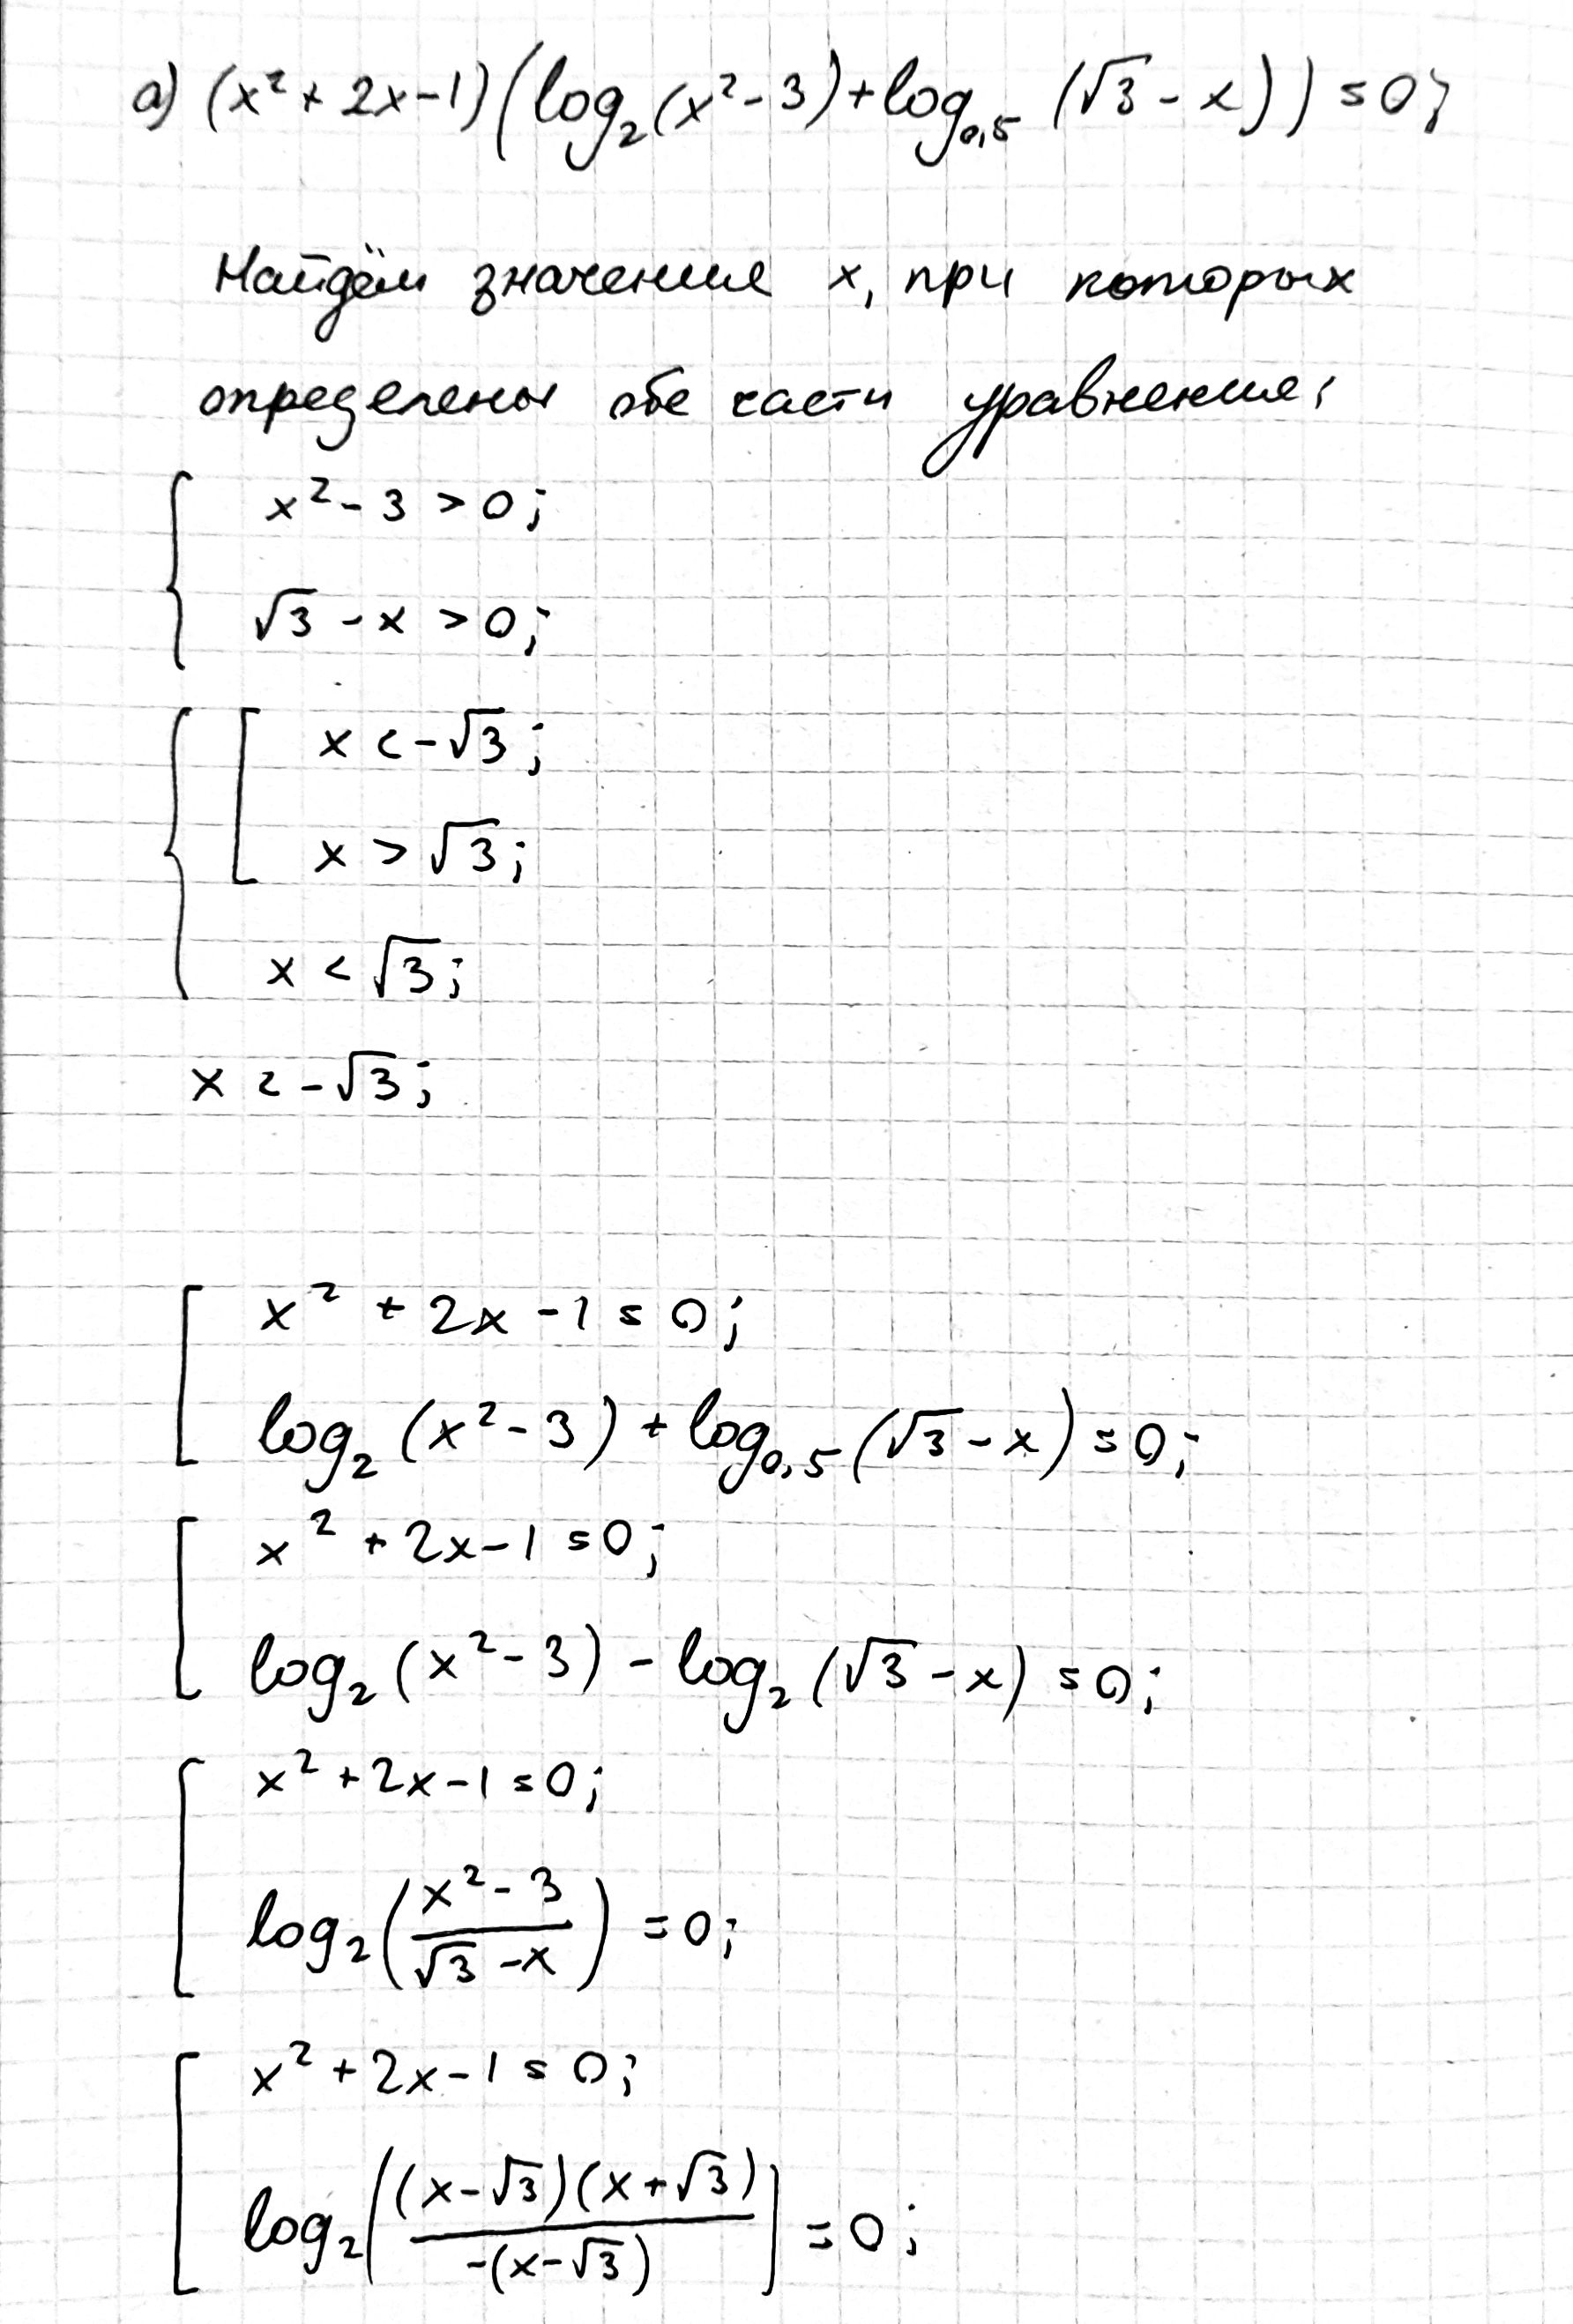 а) (x² + 2x - 1)(log₂(x² - 3) + log₀,₅ (√3 - x)) = 0;
Найдём значения x, при которых
определены обе части уравнения:
{ x² - 3 > 0;
√3 - x > 0;
{ [ x < -√3;
x > √3;
x < √3;
x < -√3;
[ x² + 2x - 1 = 0;
log₂ (x² - 3) + log₀,₅ (√3 - x) = 0;
[ x² + 2x - 1 = 0;
log₂ (x² - 3) - log₂ (√3 - x) = 0;
[ x² + 2x - 1 = 0;
log₂ ((x² - 3)/(√3 - x)) = 0;
[ x² + 2x - 1 = 0;
log₂ (((x - √3)(x + √3))/(-(x - √3))) = 0;